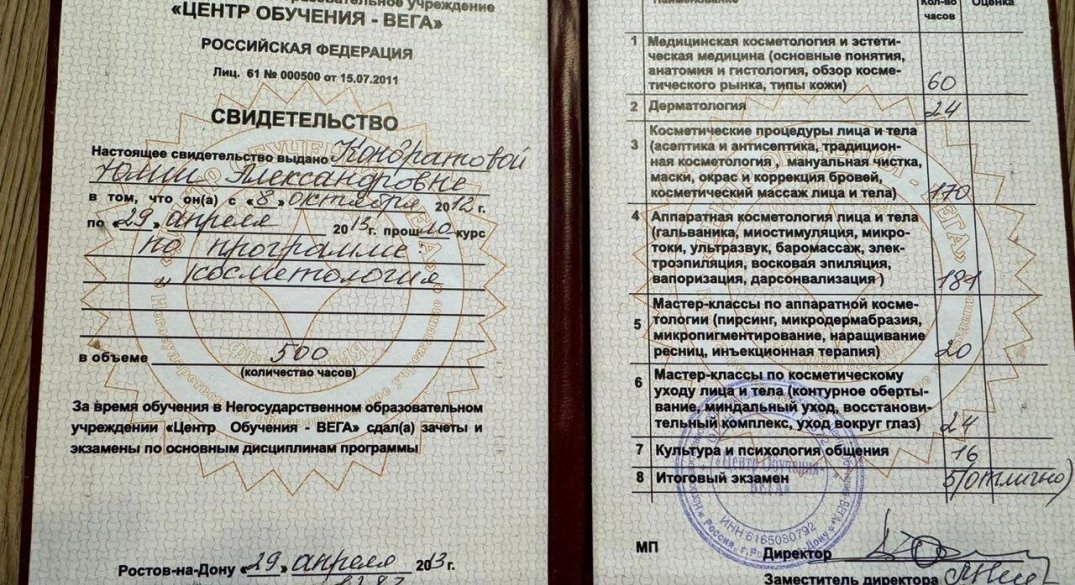 образовательное учреждение
«ЦЕНТР ОБУЧЕНИЯ - ВЕГА»
РОССИЙСКАЯ ФЕДЕРАЦИЯ
Лиц. 61 № 000500 от 15.07.2011
СВИДЕТЕЛЬСТВО
Настоящее свидетельство выдано Кондратовой
Юлии Александровне
в том, что он(а) с «8» октября 2012 г.
по «29» апреля 2013г. прошло курс
по программе
„косметология
в объеме 500
(количество часов)
За время обучения в Негосударственном образовательном
учреждении «Центр Обучения - ВЕГА» сдал(а) зачеты и
экзамены по основным дисциплинам программы
Ростов-на-Дону «29» апреля 2013г.
Наименование Кол-во Оценка
часов
1 Медицинская косметология и эстети-
ческая медицина (основные понятия,
анатомия и гистология, обзор косме-
тического рынка, типы кожи) 60
2 Дерматология 24
3 Косметические процедуры лица и тела
(асептика и антисептика, традицион-
ная косметология , мануальная чистка,
маски, окрас и коррекция бровей,
косметический массаж лица и тела) 170
4 Аппаратная косметология лица и тела
(гальваника, миостимуляция, микро-
токи, ультразвук, баромассаж, элек-
троэпиляция, восковая эпиляция,
вапоризация, дарсонвализация ) 181
5 Мастер-классы по аппаратной косме-
тологии (пирсинг, микродермабразия,
микропигментирование, наращивание
ресниц, инъекционная терапия) 20
6 Мастер-классы по косметическому
уходу лица и тела (контурное оберты-
вание, миндальный уход, восстанови-
тельный комплекс, уход вокруг глаз) 24
7 Культура и психология общения 16
8 Итоговый экзамен 5(отлично)
«Центр Обучения-
ВЕГА»
ИНН 6165080792
МП Директор
Заместитель директора